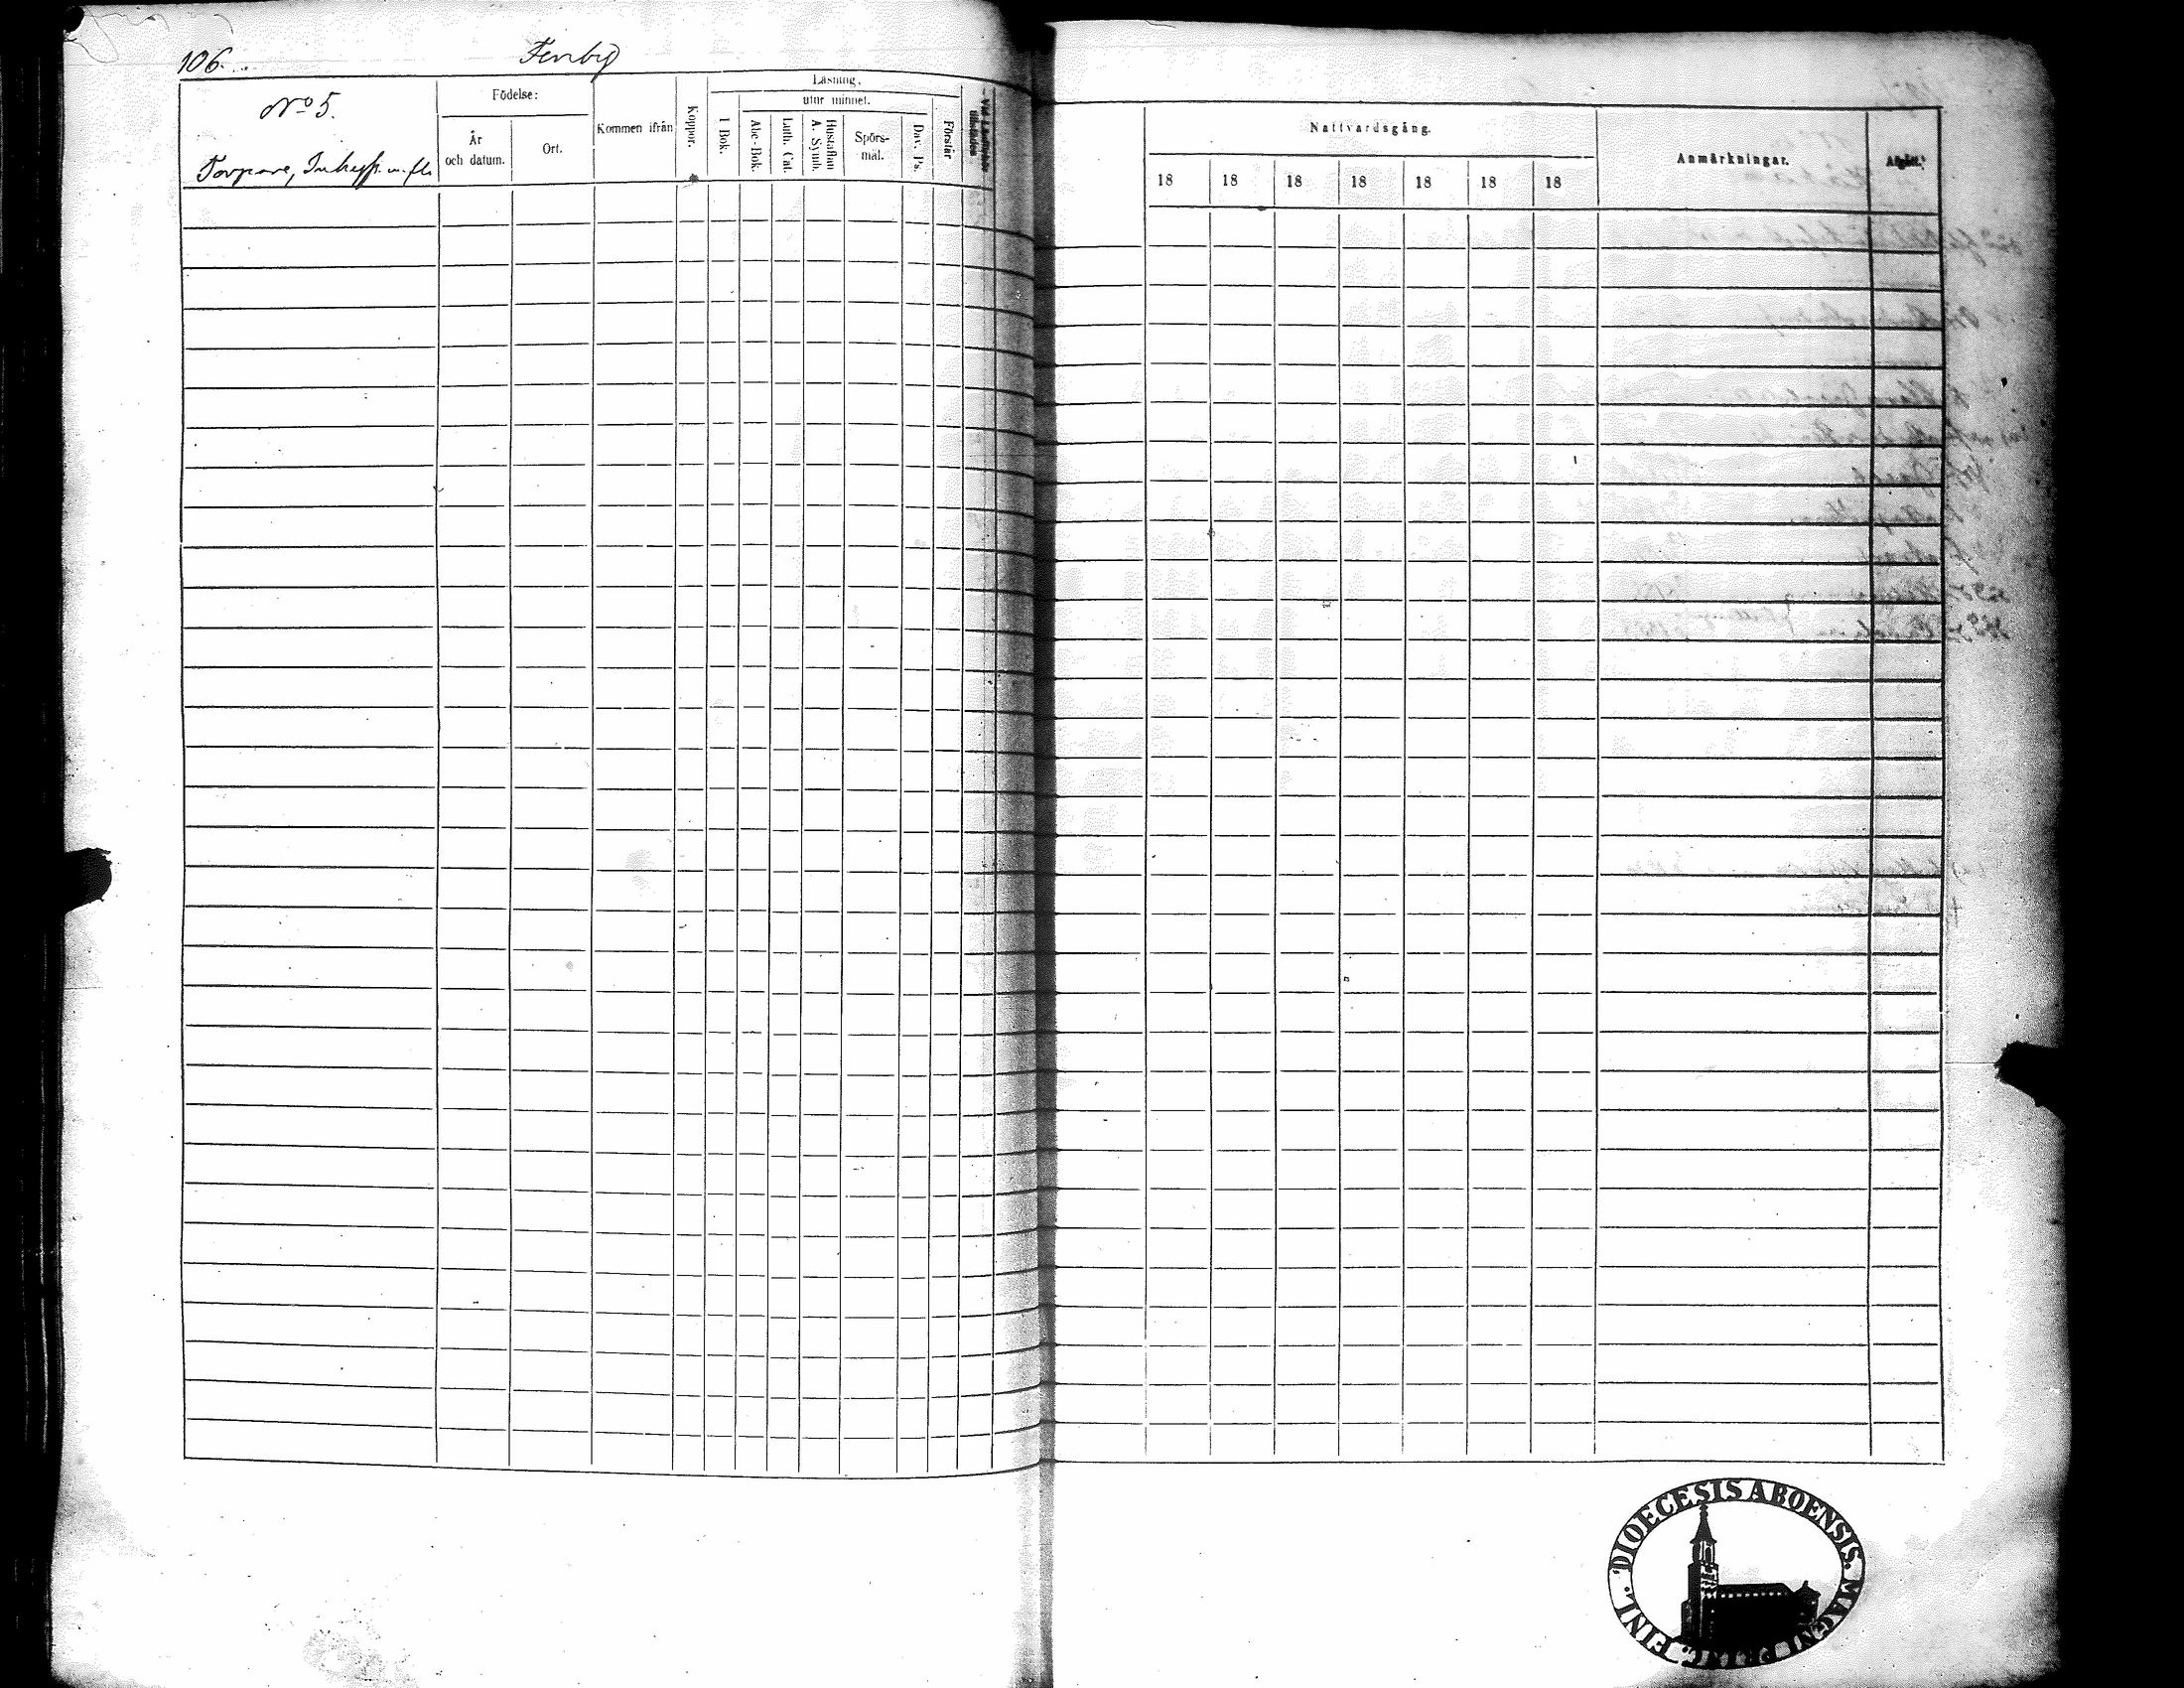 106.
Fenby
No 5.
Torpare, Inhyss. m. fl.
Födelse:
År
och datum.
Ort.
Kommen ifrån
Koppor.
Läsning.
utur minnet.
I Bok.
Abc-Bok.
Luth. Cat.
Hustaflan
A. Symb.
Spörs-
mål.
Dav. Ps.
Förstår
Nattvardsgång.
18 18 18 18 18 18 18
Anmärkningar.
Afgått.
DIOECESIS ABOENSIS. MAGNI PRINC. FINL.